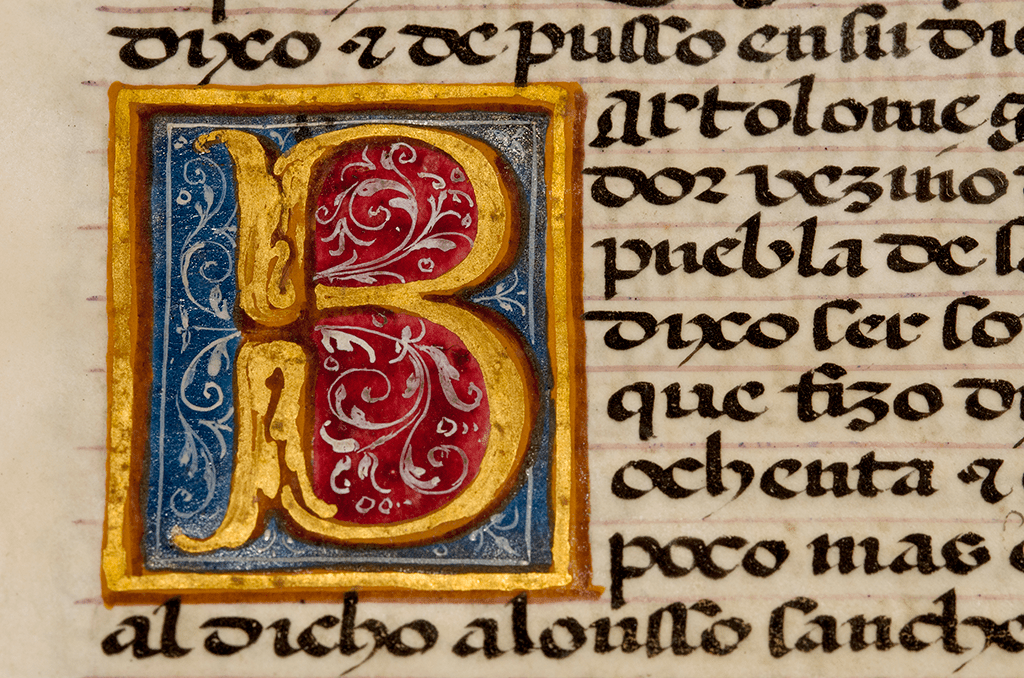 dixo ⁊ de pusso en su di
Bartolome g
dor vezino
puebla de l
dixo ser so
que fizo d
ochenta ⁊
poco mas
al dicho alonsso sanche